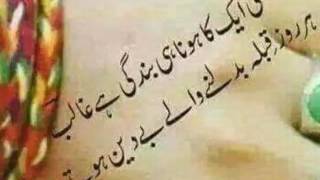 ایک کا ہونا ہی بندگی ہے غالب
ہر روز قبلہ بدلنے والے بے دین